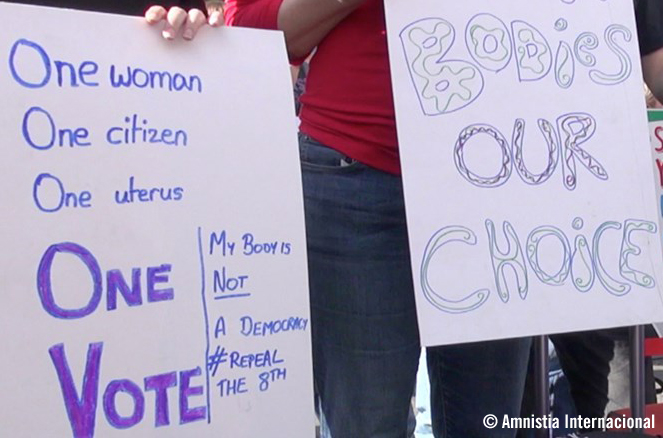 One woman
One citizen
One uterus
ONE
VOTE
MY BODY IS
NOT
A DEMOCRACY
#REPEAL
THE 8TH
BODIES
OUR
CHOICE
© Amnistia Internacional